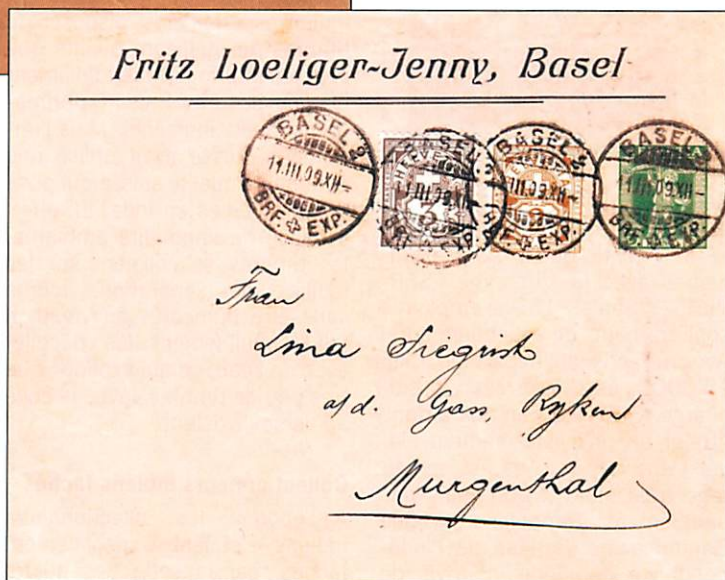 Fritz Loeliger-Jenny, Basel
BASEL 2
11.III.09.XII-
BRF. EXP.
BASEL 2
11.III.09.XII-
BRF. EXP.
BASEL 2
11.III.09.XII-
BRF. EXP.
BASEL 2
11.III.09.XII-
BRF. EXP.
Frau
Lina Siegrist
a/d. Gass, Ryken
Murgenthal